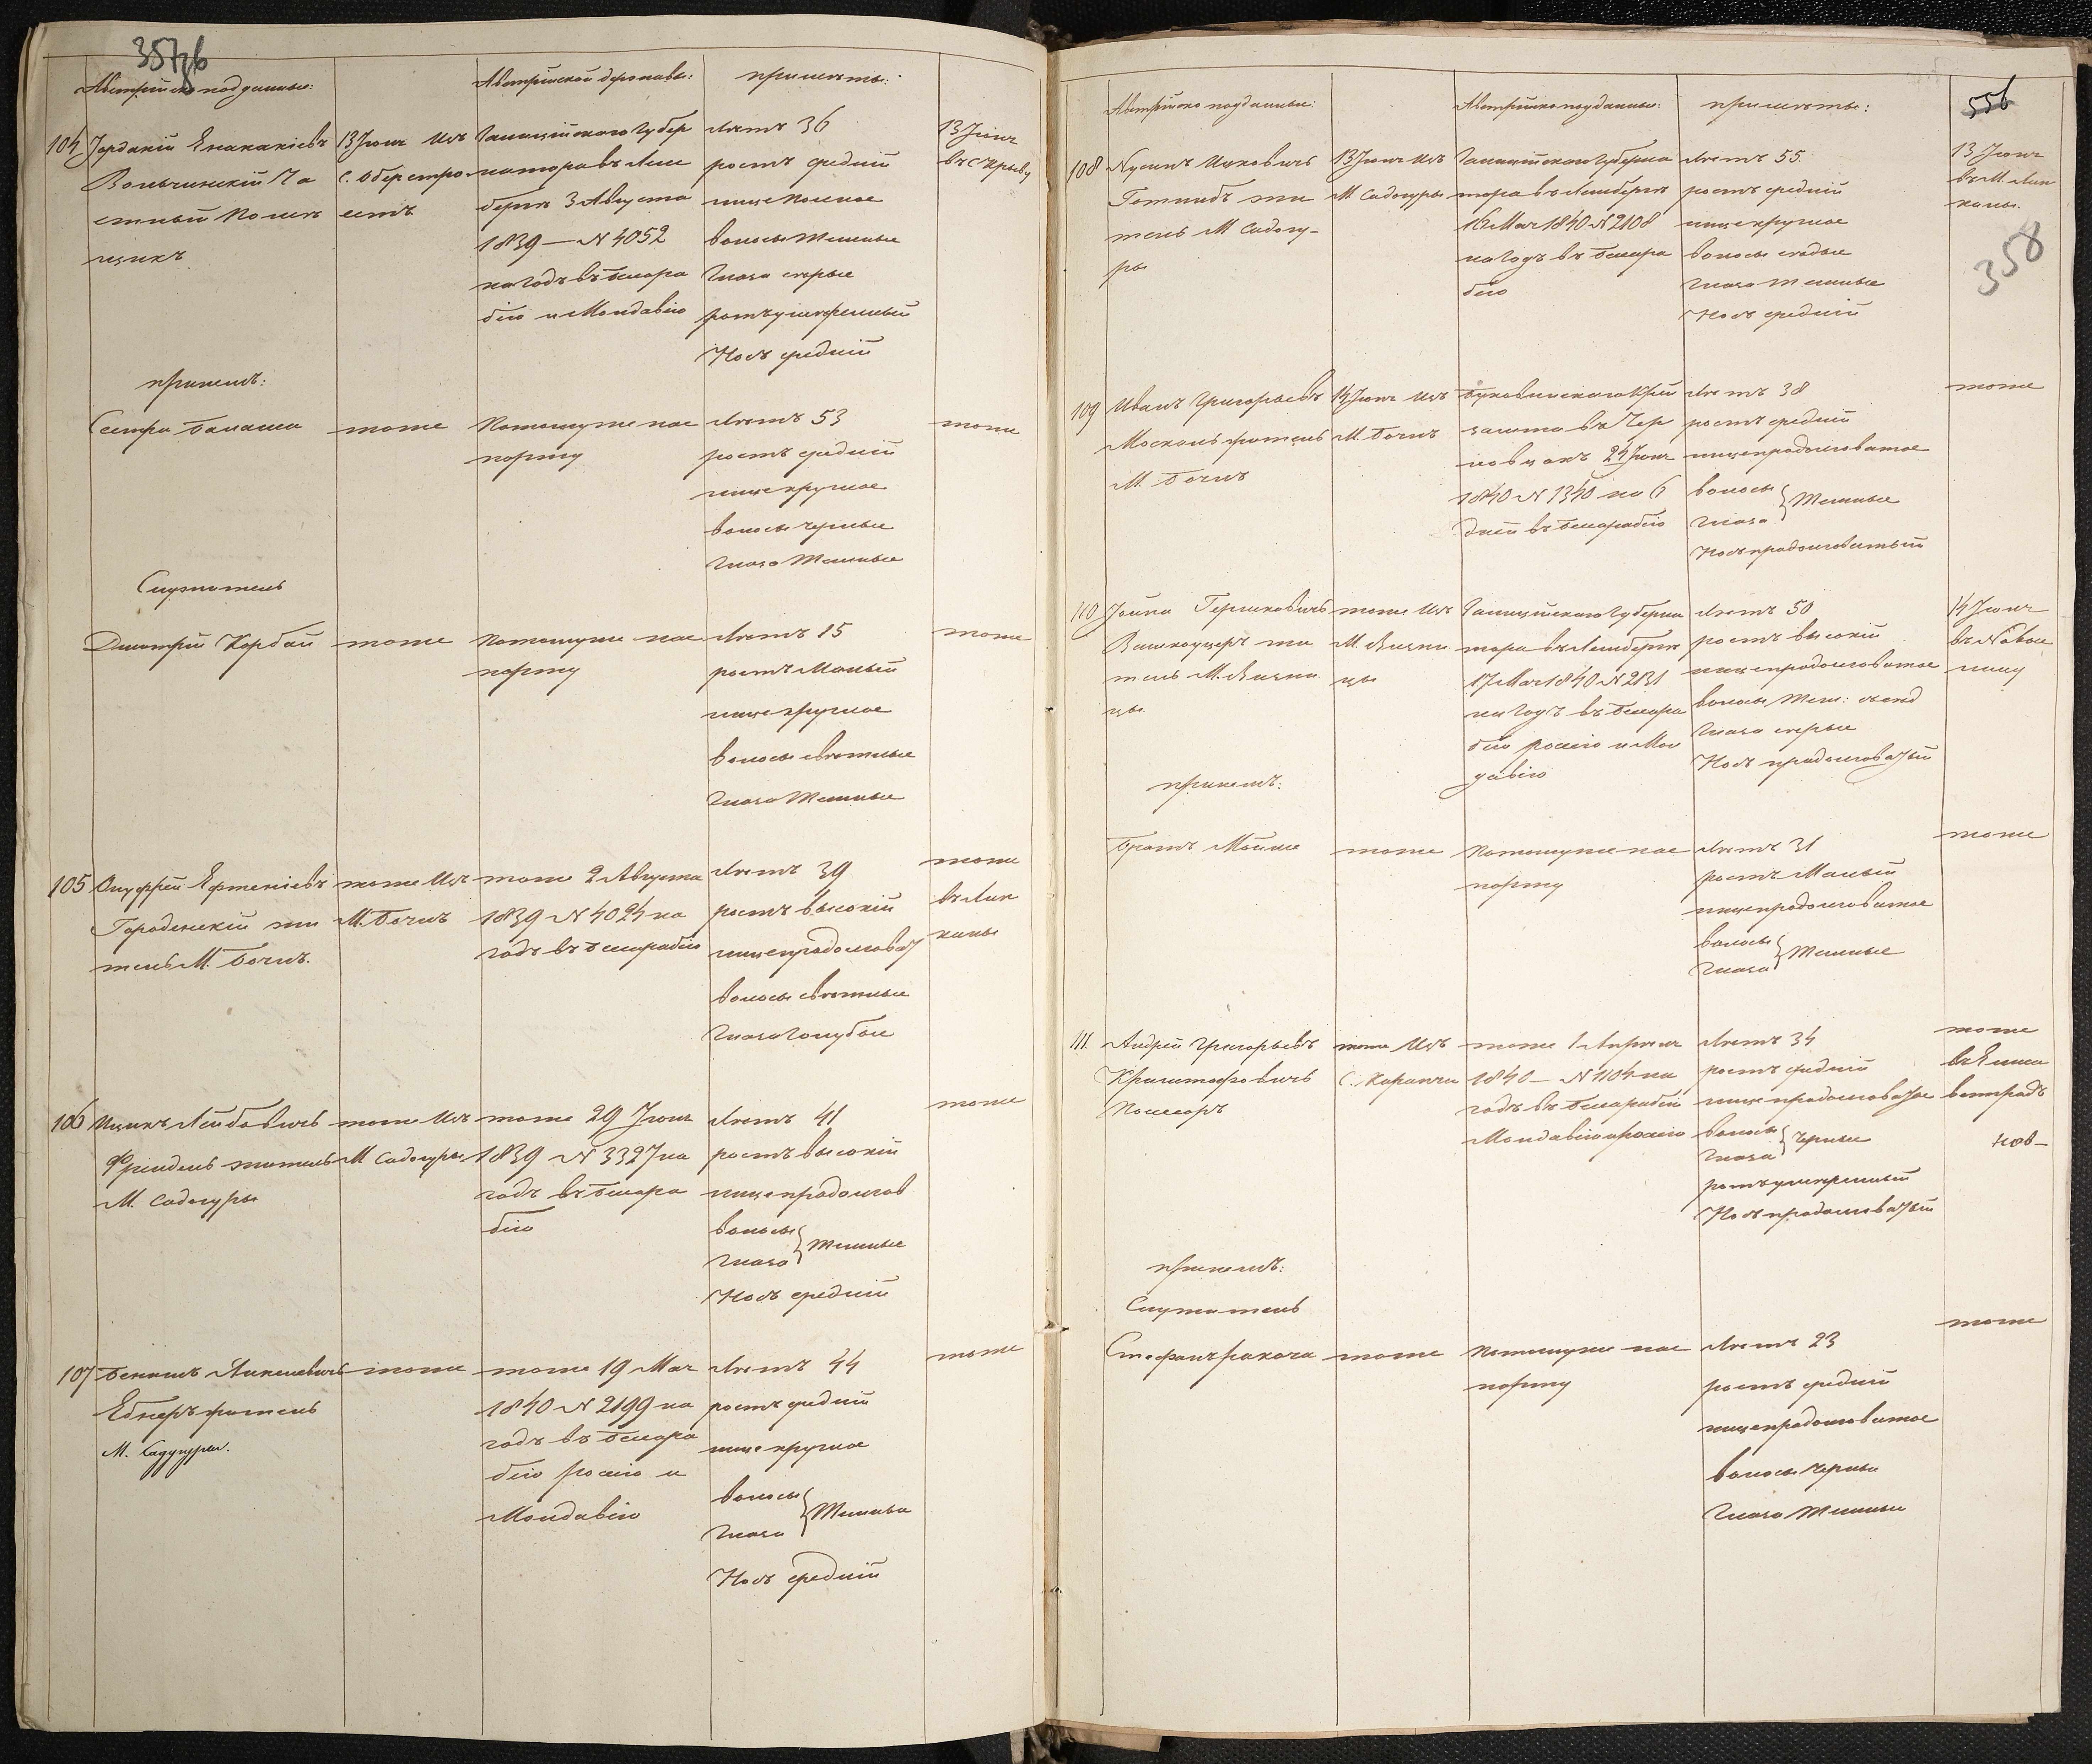 Австрійско подданные:
Австрійской державы:
приметы:
104
Іордакій
13 Іюня изъ
с. Оберстро-
естъ
Галиційского Губер
натора въ Лем
берги 3 Августа
1839 — N 4052
на годъ въ Бесара
бію и Молдавію
Летъ 36
ростъ средній
лице полное
волосы темные
глаза серые
ротъ умеренный
Носъ средній
13 Іюня
при немъ:
Сестра Балаша
тоже
По томуже пас
порту
Летъ 53
ростъ средній
лице круглое
волосы черные
глаза темные
тоже
Служитель
Дмитрій Корбай
тоже
По томуже пас
порту
Летъ 15
ростъ малый
лице круглое
волосы светлые
глаза темные
тоже
105
Онуфрей Ефтеніевъ
Городенскій жи
тель М. Боянъ.
тоже изъ
М. Боянъ
тоже 2 Августа
1839 N 4024 на
годъ въ Бесарабію
Летъ 39
ростъ высокій
лице продолговат
волосы светлые
глаза голубые
тоже
въ Лип
каны
106
Ицикъ Лейбовичъ
Френдель житель
М. Садогуры
тоже изъ
М Садогуры
тоже 29 Іюня
1839 N 3327 на
годъ въ Бесара
бію
Летъ 41
ростъ высокій
лице продолгов
волосы
глаза } темные
Носъ средній
тоже
107
житель
М. Садугуры.
тоже
тоже 19 Мая
1840 N 2199 на
годъ въ Бесара
бію росію и
Молдавію
Летъ 44
ростъ средній
лице круглое
волосы
глаза } темные
Носъ средній
тоже
Австрійско подданные:
Австрійско подданные:
приметы:
556
358
108
Нусинъ Ицковичъ
Готлибъ жи
тель М Садогу-
ры
13 Іюня изъ
М. Садогуры
Галиційского Губерна
тора въ Лемберги
16 Мая 1840 N 2108
на годъ въ Бесара
бію
Летъ 55.
ростъ средній
лице круглое
волосы седые
глаза темные
Носъ средній
13 Іюня
въ М. Лип
каны.
109
Иванъ Григорьевъ
Москаль житель
М. Боянъ
14 Іюня изъ
М. Боянъ
Буковинского Крей
замта въ Чер
новцахъ 24 Іюня
1840 N 1340 на 6
дней въ Бесарабію
Летъ 38
ростъ средній
лице продолговатое
волосы
глаза } темные
Носъ продолговатый
тоже
110
Гершковичъ
жи
тель М. Вижни
цы.
тоже изъ
М. Вижни
цы
Галиційского Губерна
тора въ Лемберги
17 Мая 1840 N 2131
на годъ въ Бесара
бію росію и Мол
давію
Летъ 50
ростъ высокій
лице продолговатое
волосы тем: съ сед
глаза серые
Носъ продолговатый
14 Іюня
въНово
лицу
при немъ:
братъ Мойше
тоже
По томуже пас
порту
Летъ 31
ростъ малый
лице продолговатое
волосы
глаза } темные
тоже
111.
Андрей Григорьевъ
Криштофовичъ
Посесоръ
тоже изъ
С. Карапчи
тоже 1 Апреля
1840 — N 1104 на
годъ въ Бесарабію
Молдавію и росію
Летъ 34
ростъ средній
лице продолговатое
волосы
глаза } черные
ротъ умеренный
Носъ продолговатый
тоже
въ Елиса
ветградъ
нов-
при немъ:
Служитель
Стефанъ Ракоча
тоже
По томуже пас
порту
Летъ 23
ростъ средній
лице продолговатое
волосы черные
глаза темные
тоже